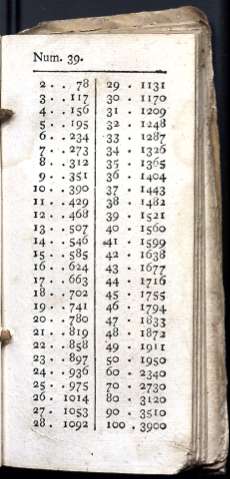 Num. 39.
2 . . 78
3 . . 117
4 . . 156
5 . . 195
6 . . 234
7 . . 273
8 . . 312
9 . . 351
10 . . 390
11 . . 429
12 . . 468
13 . . 507
14 . . 546
15 . . 585
16 . . 624
17 . . 663
18 . . 702
19 . . 741
20 . . 780
21 . . 819
22 . . 858
23 . . 897
24 . . 936
25 . . 975
26 . 1014
27 . 1053
28 . 1092
29 . 1131
30 . 1170
31 . 1209
32 . 1248
33 . 1287
34 . 1326
35 . 1365
36 . 1404
37 . 1443
38 . 1482
39 . 1521
40 . 1560
41 . 1599
42 . 1638
43 . 1677
44 . 1716
45 . 1755
46 . 1794
47 . 1833
48 . 1872
49 . 1911
50 . 1950
60 . 2340
70 . 2730
80 . 3120
90 . 3510
100 . 3900